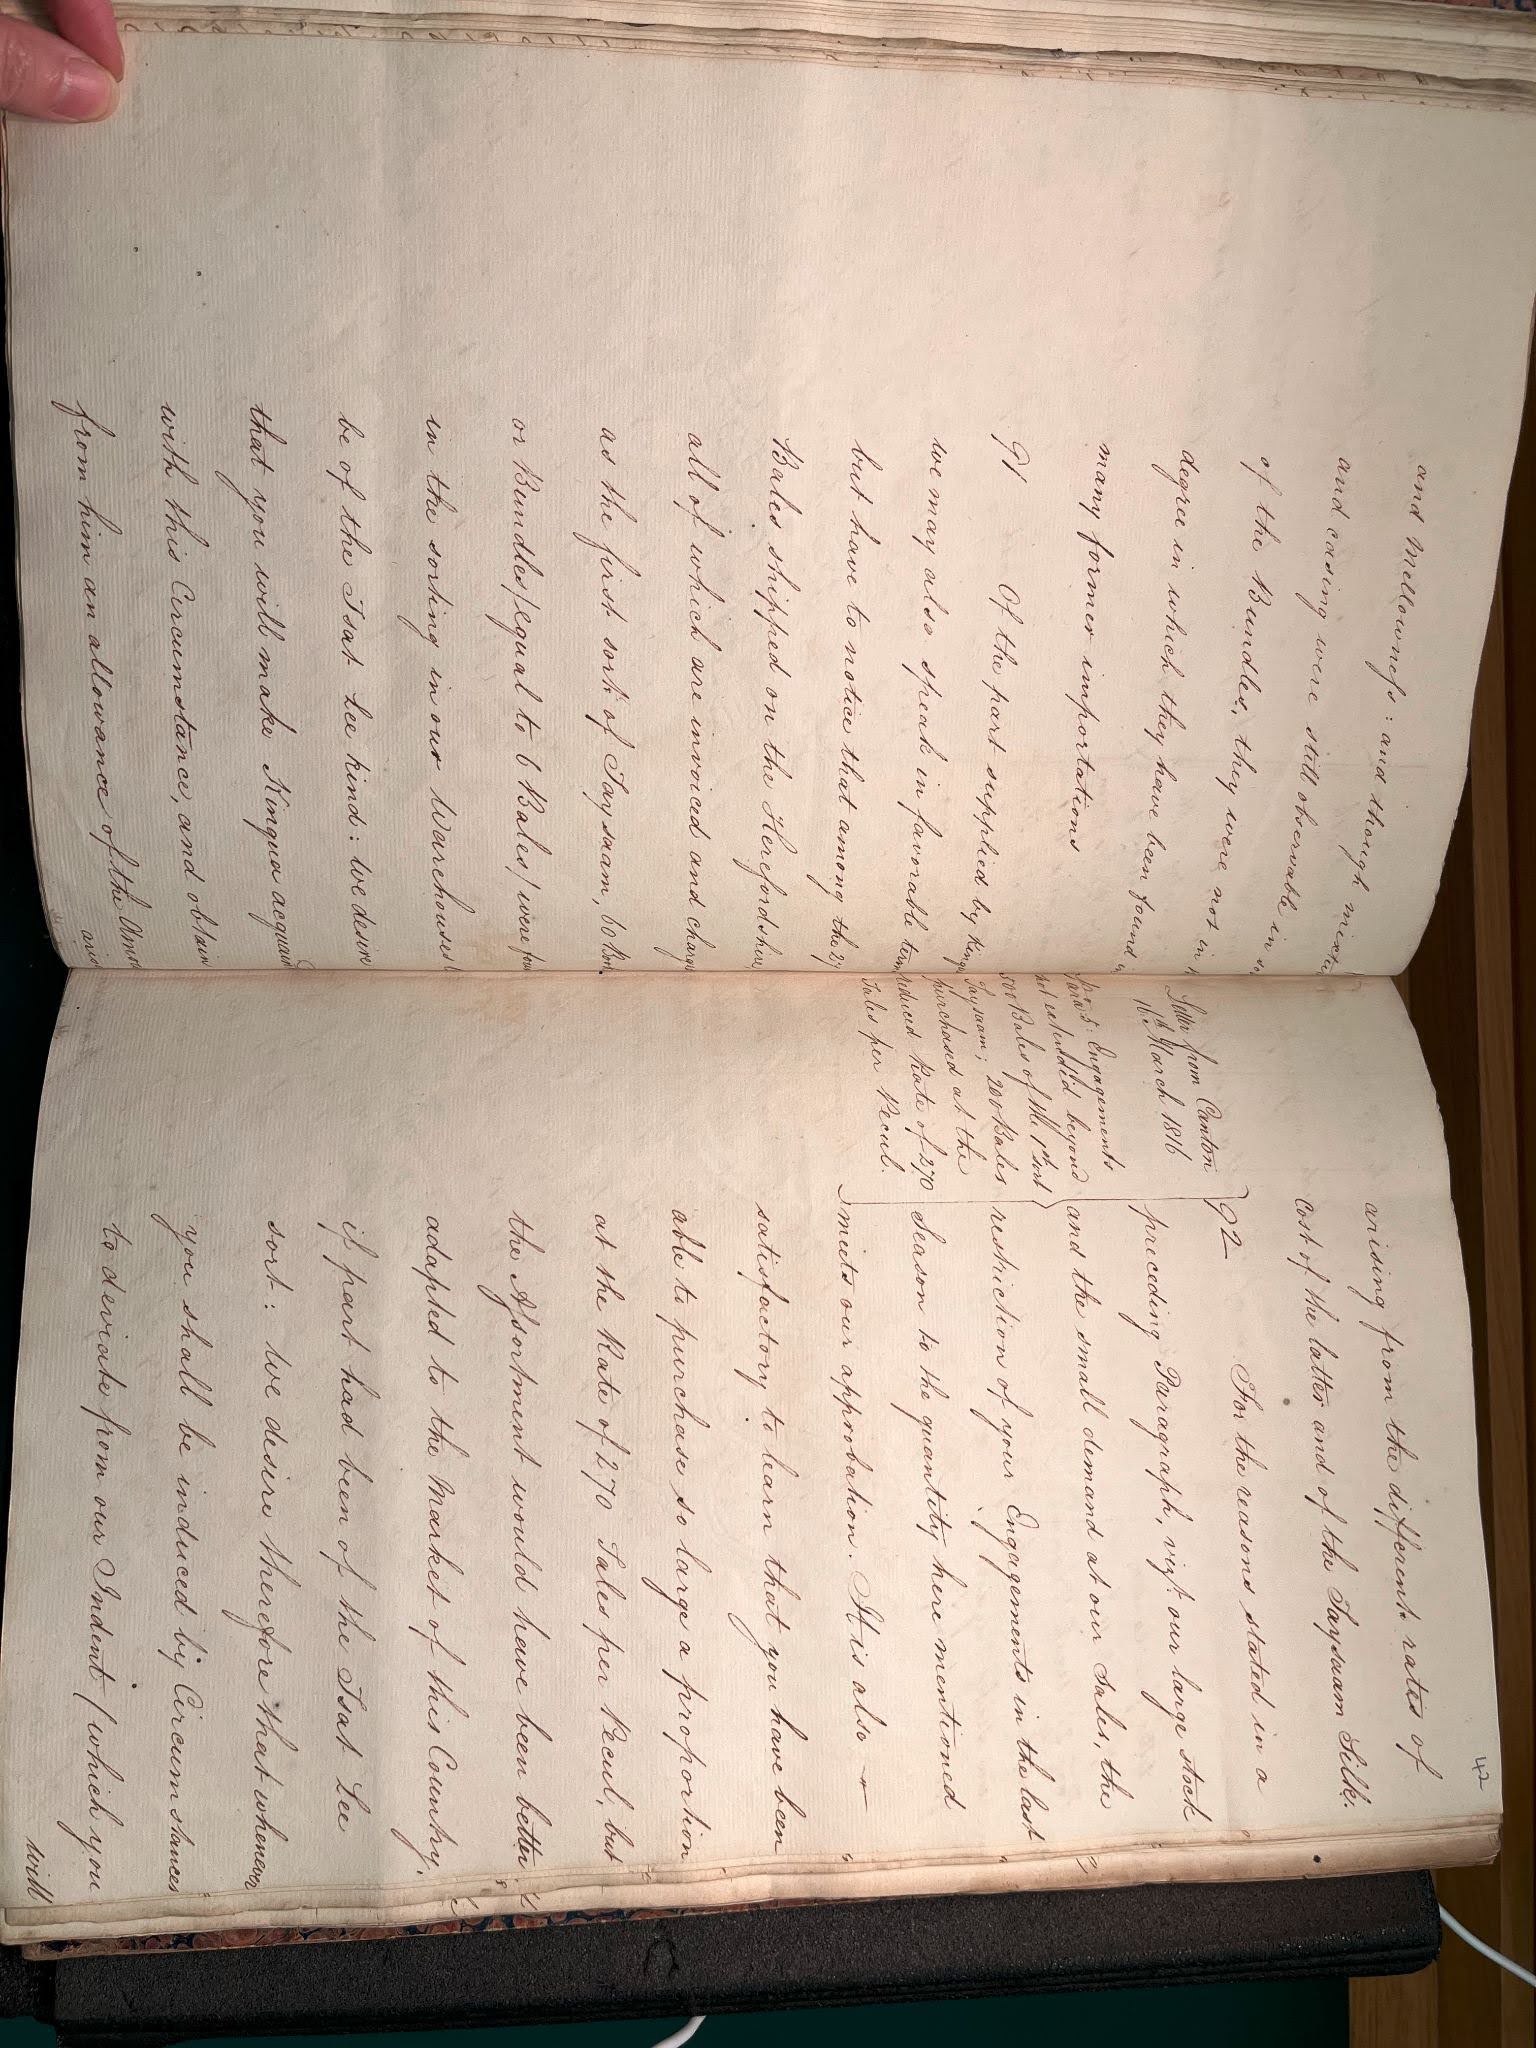 and Mellowness: and though mixture
and casing were still observable in some
of the Bundles, they were not in the
degree in which they have been found in
many former importations
91 Of the part supplied by Kinqua
we may also speak in favorable terms
but have to notice that among the 27
Bales shipped on the Herefordshire
all of which are invoiced and charged
as the first sort of Taysaam, 60
or Bundles/equal to 6 Bales/were found
in the sorting in our Warehouses
be of the Tsat Lee kind: we desire
that you will make Kinqua acquainted
with this Circumstance, and obtain
from him an allowance of the Amount
arising
42
arising from the different rates of
Cost of the latter and of the Taysaam Silk.
Letter from Canton
16th March 1816
Para 5: Engagements
not extended beyond
500 Bales of the 1st sort
Taysaam; 200 Bales
purchased at the
reduced Rate of 270
Tales per Pecul.
92 For the reasons stated in a
preceding Paragraph, vizt. our large stock
and the small demand at our Sales, the
restriction of your Engagements in the last
Season to the quantity here mentioned
meets our approbation. It is also
satisfactory to learn that you have been
able to purchase so large a proportion
at the Rate of 270 Tales per Pecul, but
the Assortment would have been better
adapted to the Market of this Country,
if part had been of the Tsat Lee
sort: we desire therefore that whenever
you shall be induced by Circumstances
to deviate from our Indent (which you
will